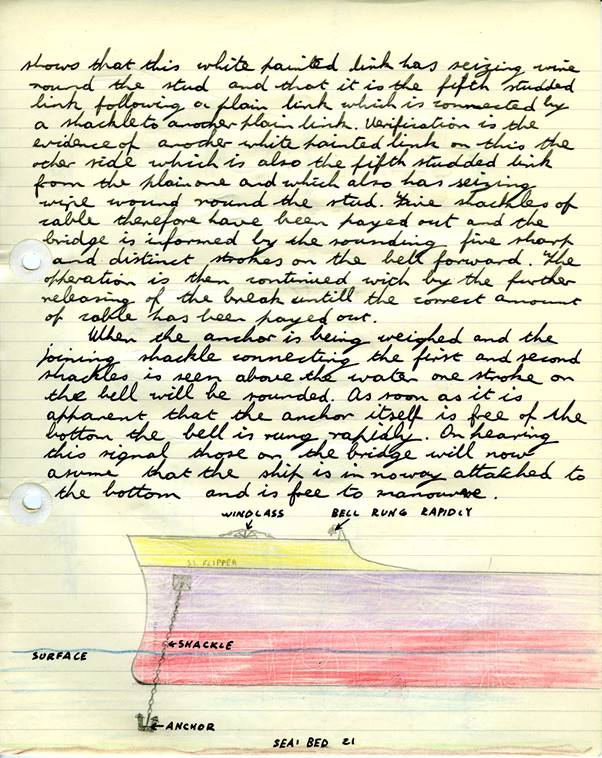 shows that this white painted link has seizing wire
round the stud and that it is the fifth studded
link following a plain link which is connected by
a shackle to another plain link. Verification is the
evidence of another white painted link on this the
other side which is also the fifth studded link
from the plain one and which also has seizing
wire wound round the stud. Five shackles of
cable therefore have been payed out and the
bridge is informed by the sounding five sharp
and distinct strokes on the bell forward. The
opperation is then continued with by the further
releasing of the break untill the correct amount
of cable has been payed out.
When the anchor is being weighed and the
joining shackle connecting the first and second
shackles is seen above the water one stroke on
the bell will be sounded. As soon as it is
apparent that the anchor itself is free of the
bottom the bell is rung rapidly. On hearing
this signal those on the bridge will now
asume that the ship is in noway attatched to
the bottom and is free to manouvre.
WINDLASS BELL RUNG RAPIDLY
S.S. FLIPPER
SHACKLE
SURFACE
ANCHOR
SEA BED 21